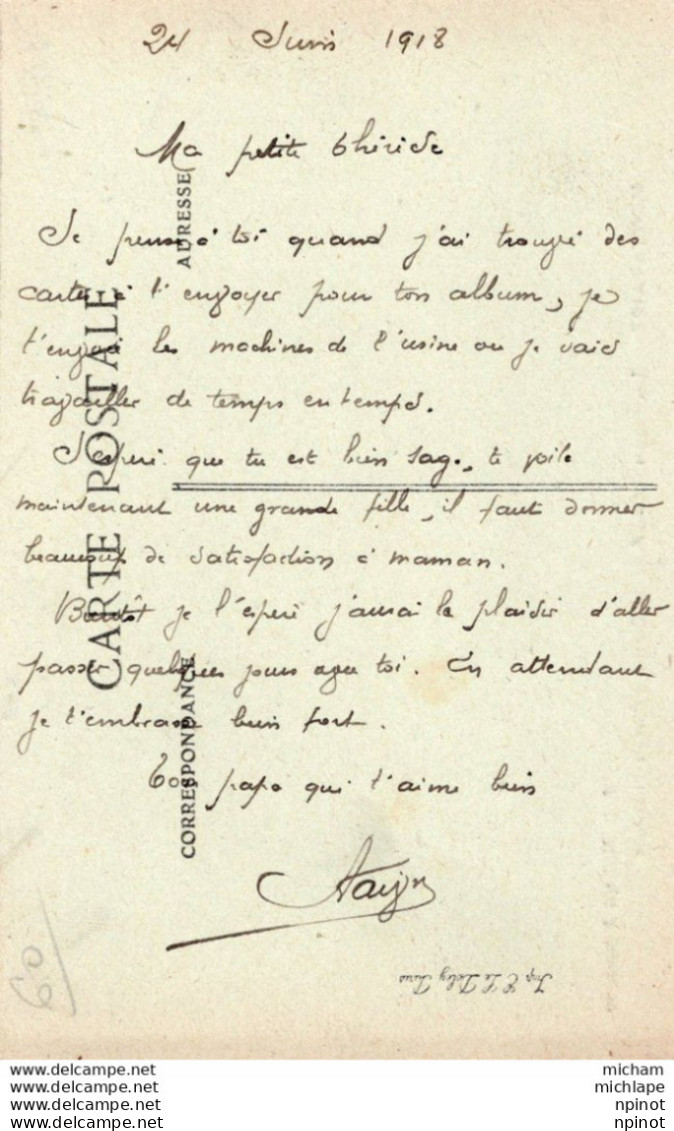 24 Juin 1918
Ma petite thérèse
Je pense à toi quand j'ai trouvé des
cartes à t'envoyer pour ton album, je
t'envoi les machines de l'usine ou je vais
travailler de temps en temps.
J'esperé que tu est bien sage, te voila
maintenant une grande fille, il faut donner
beaucoup de satisfaction à maman.
Bientôt je l'esperé j'aurai le plaisir d'aller
passer quelques jours avec toi. En attendant
je t'embrasse bien fort.
Ton papa qui t'aime bien
CARTE POSTALE
ADRESSE
CORRESPONDANCE
Imp. E. Le Deley, Paris
www.delcampe.net
www.delcampe.net
www.delcampe.net
www.delcampe.net
micham
michlape
npinot
npinot